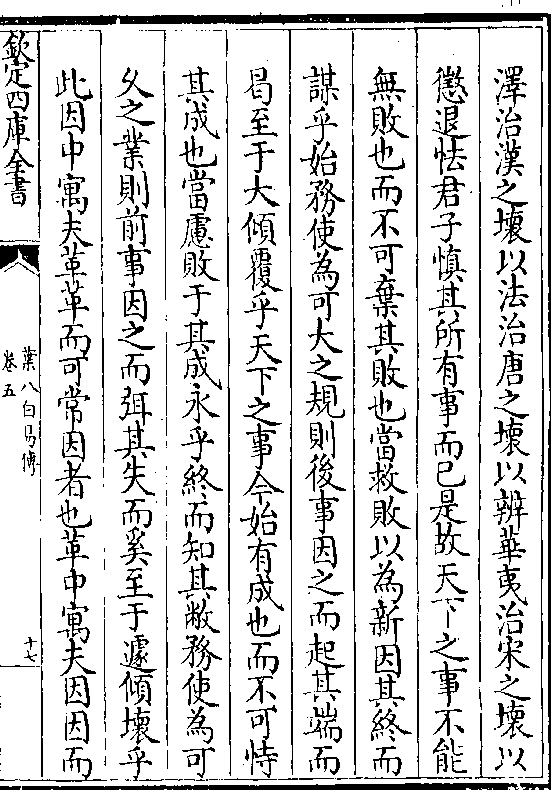 澤治漢之壞以法治唐之壞以辨華夷治宋之壞以
懲退怯君子慎其所有事而已是故天下之事不能
無敗也而不可棄其敗也當救敗以為新因其終而
謀乎始務使為可大之規則後事因之而起其端而
曷至于大傾覆乎天下之事今始有成也而不可恃
其成也當慮敗于其成永乎終而知其敝務使為可
乆之業則前事因之而弭其失而奚至于遽傾壞乎
此因中寓夫革革而可常因者也革中寓夫因因而
欽定四庫全書
葉八白易傳
卷五
十七